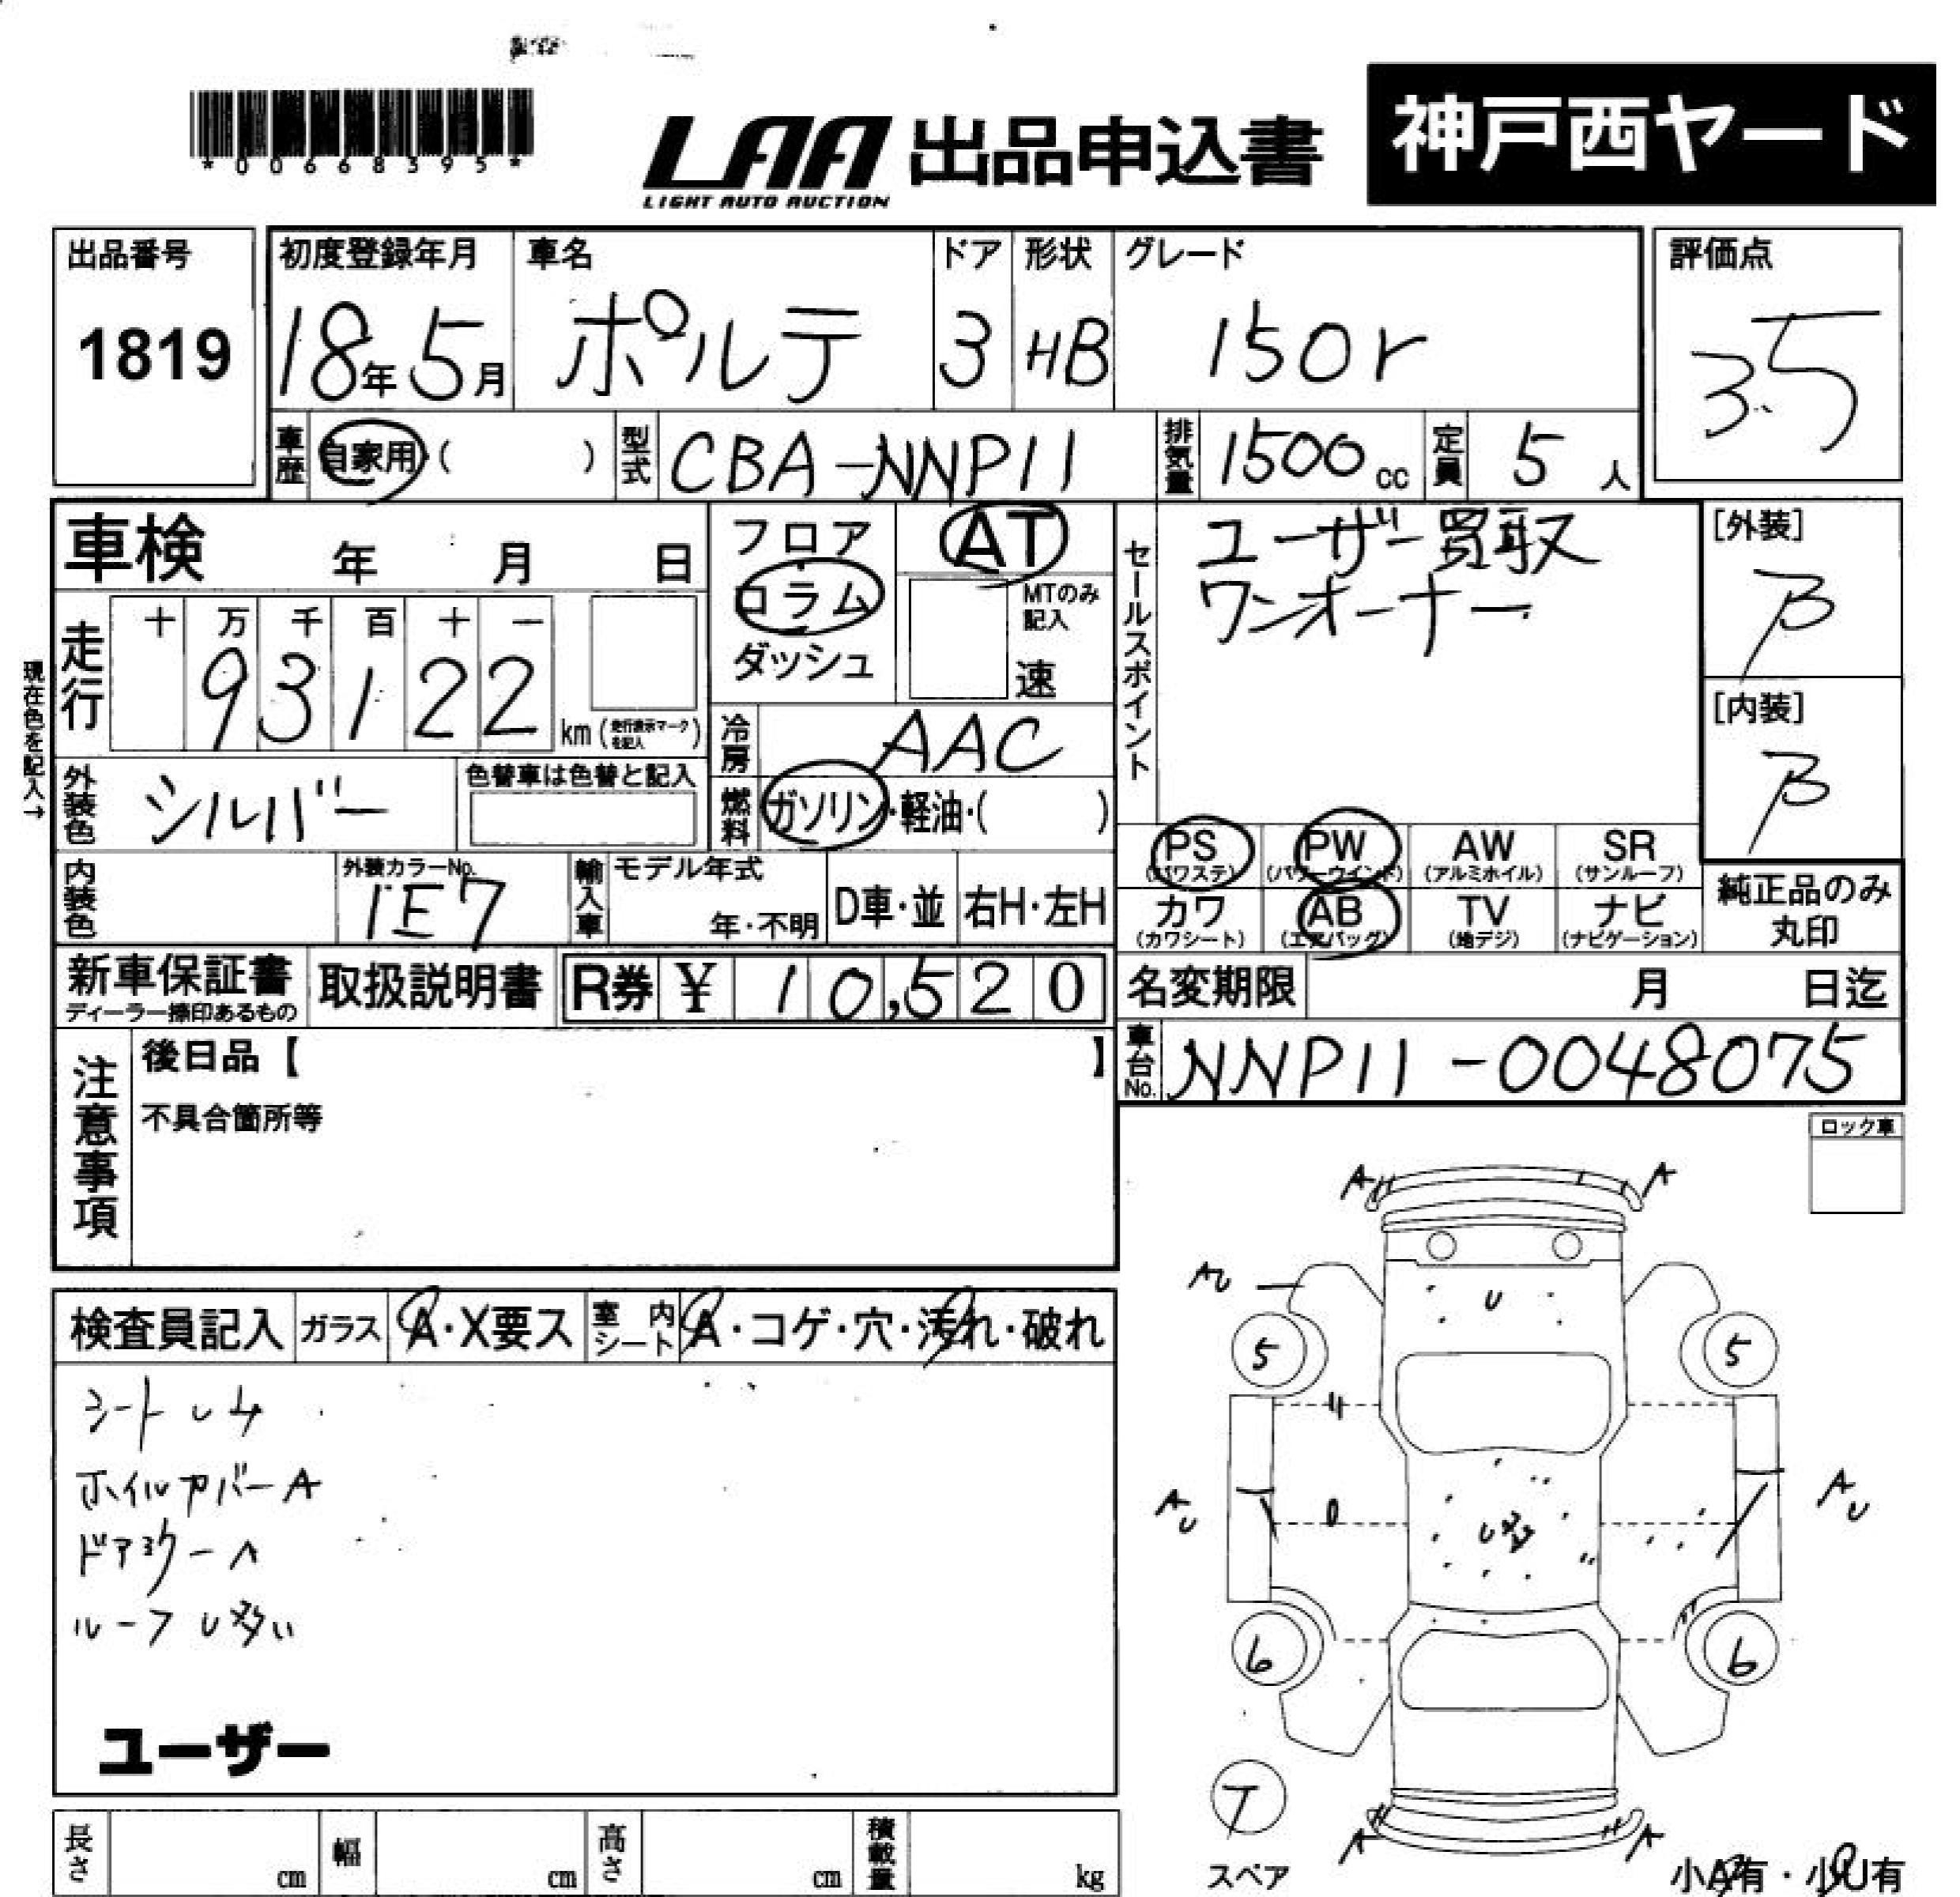 *00668395*
LAA 出品申込書 神戸西ヤード
LIGHT AUTO AUCTION
出品番号 初度登録年月 車名 ドア 形状 グレード 評価点
1819 18年5月 ポルテ 3 HB 150r 3.5
車歴 自家用・( ) 型式 CBA-NNP11 排気量 1500cc 定員 5人
車検 年 月 日
フロア
コラム
ダッシュ
AT
MTのみ記入
速
セールスポイント
ユーザー買取
ワンオーナー
[外装]
B
[内装]
B
現在色を記入→
走行 十 万 千 百 十 一
93122 km(走行表示マークを記入)
冷房 AAC
外装色 シルバー 色替車は色替と記入
燃料 ガソリン・軽油・( )
PS (パワステ) PW (パワーウインド) AW (アルミホイル) SR (サンルーフ)
カワ (カワシート) AB (エアバッグ) TV (地デジ) ナビ (ナビゲーション)
純正品のみ
丸印
内装色 外装カラーNo. 1E7 輸入車 モデル年式 年・不明 D車・並 右H・左H
新車保証書 ディーラー捺印あるもの 取扱説明書 R券 ¥ 10,520
名変期限 月 日迄
車台No. NNP11-0048075
注意事項
後日品【 】
不具合箇所等
ロック車
検査員記入 ガラス A・X要ス 室内シート A・コゲ・穴・汚れ・破れ
シート
ホイルカバーA
ドアミラーA
ルーフU多い
ユーザー
A A
AU U
5 5
AU U多 AU
6 6
T
A A
スペア
小A有・小U有
長さ cm 幅 cm 高さ cm 積載量 kg